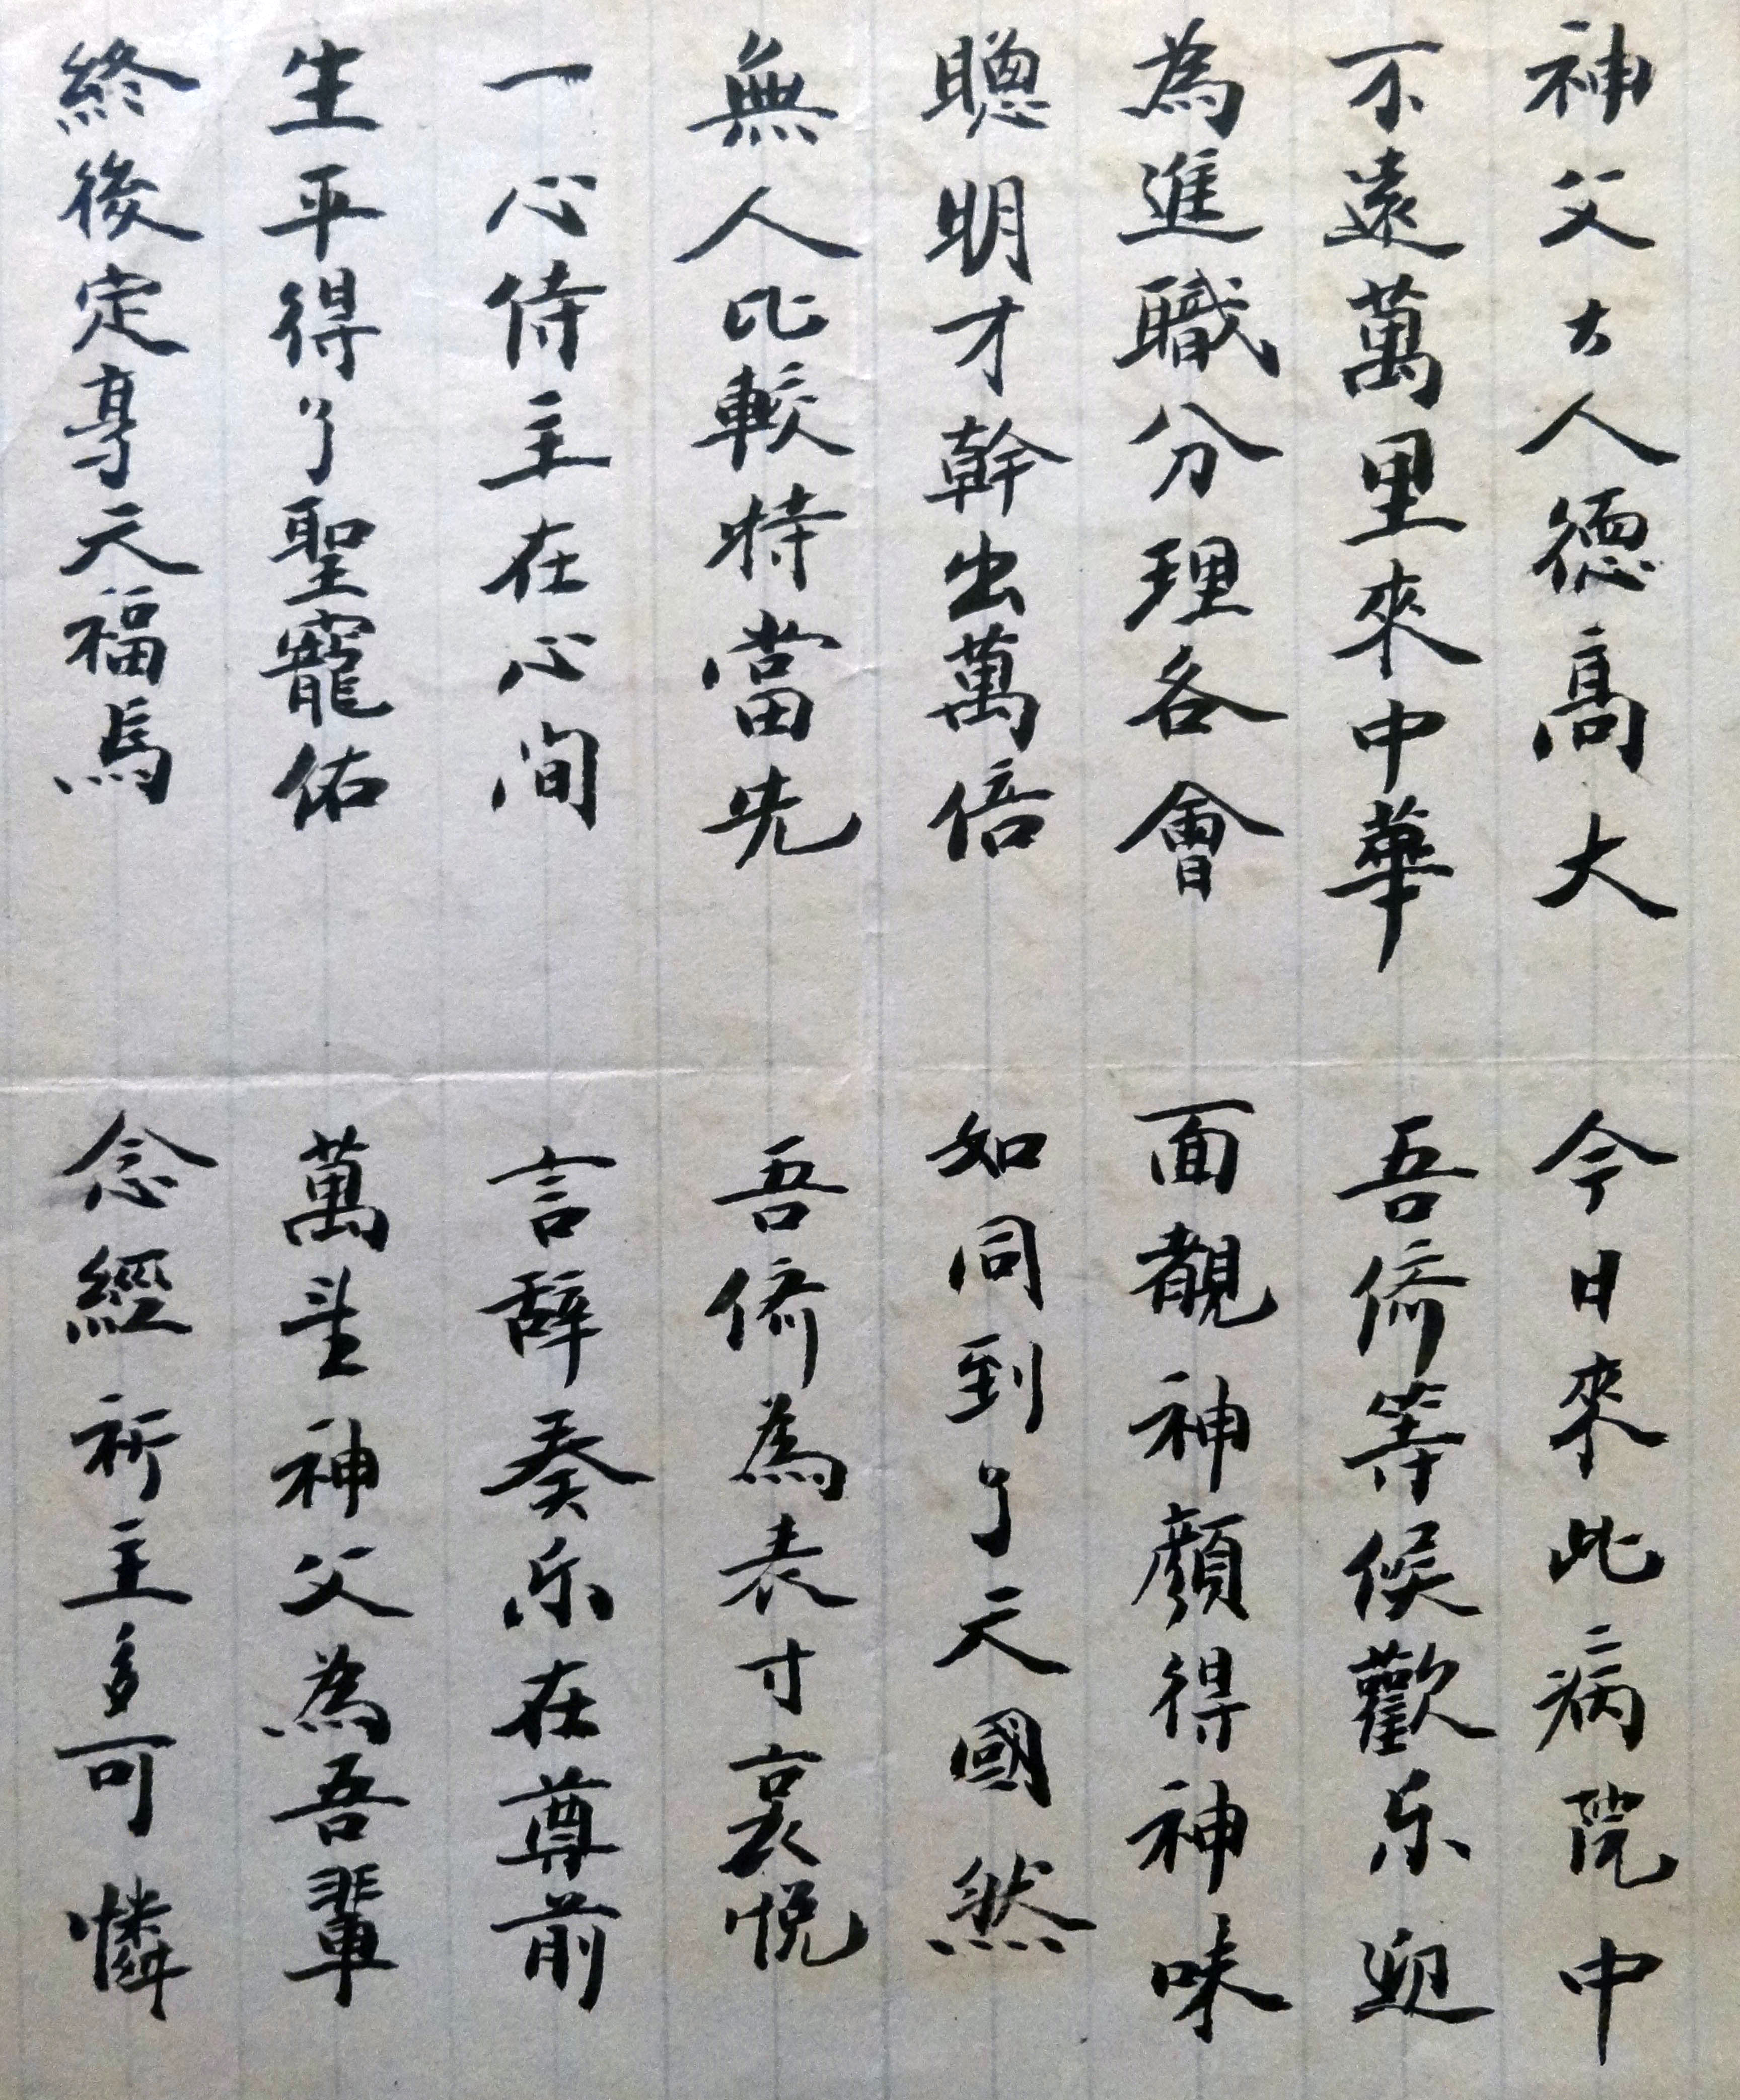 神父大人德高大
不遠萬里來中華
為進職分理各會
聰明才幹出萬倍
無人比較特當先
一心侍主在心间
生平得了聖寵佑
終後定享天福焉
今日來此病院中
吾儕等候歡乐迎
面覩神顏得神味
如同到了天國然
吾儕為表寸衷悅
言辭奏乐在尊前
萬望神父為吾輩
念經祈主多可憐